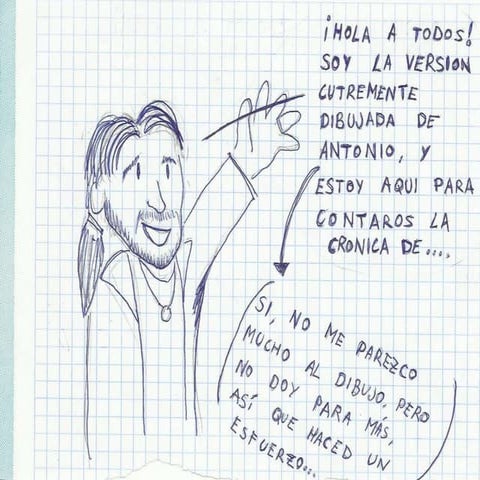 ¡HOLA A TODOS!
SOY LA VERSION
CUTREMENTE
DIBUJADA DE
ANTONIO, Y
ESTOY AQUI PARA
CONTAROS LA
CRONICA DE....
SI, NO ME PAREZCO
MUCHO AL DIBUJO, PERO
NO DOY PARA MÁS,
ASÍ QUE HACED UN
ESFUERZO...